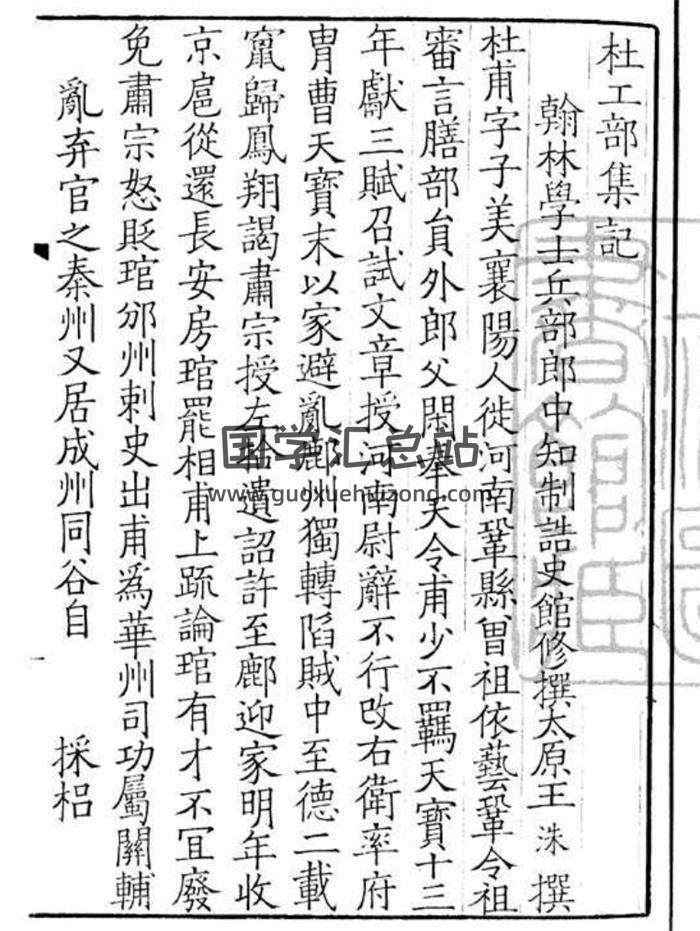 杜工部集記
翰林學士兵部郎中知制誥史館修撰太原王洙撰
杜甫字子美襄陽人徙河南鞏縣曾祖依藝鞏令祖
審言膳部員外郎父閑奉天令甫少不羈天寶十三
年獻三賦召試文章授河南尉辭不行改右衛率府
胄曹天寶末以家避亂鄜州獨轉陷賊中至德二載
竄歸鳳翔謁肅宗授左拾遺詔許至鄜迎家明年收
京扈從還長安房琯罷相甫上疏論琯有才不冝廢
免肅宗怒貶琯邠州刺史出甫為華州司功屬關輔
亂弃官之秦州又居成州同谷自 採梠
国学汇总站
www.guoxuehuizong.com